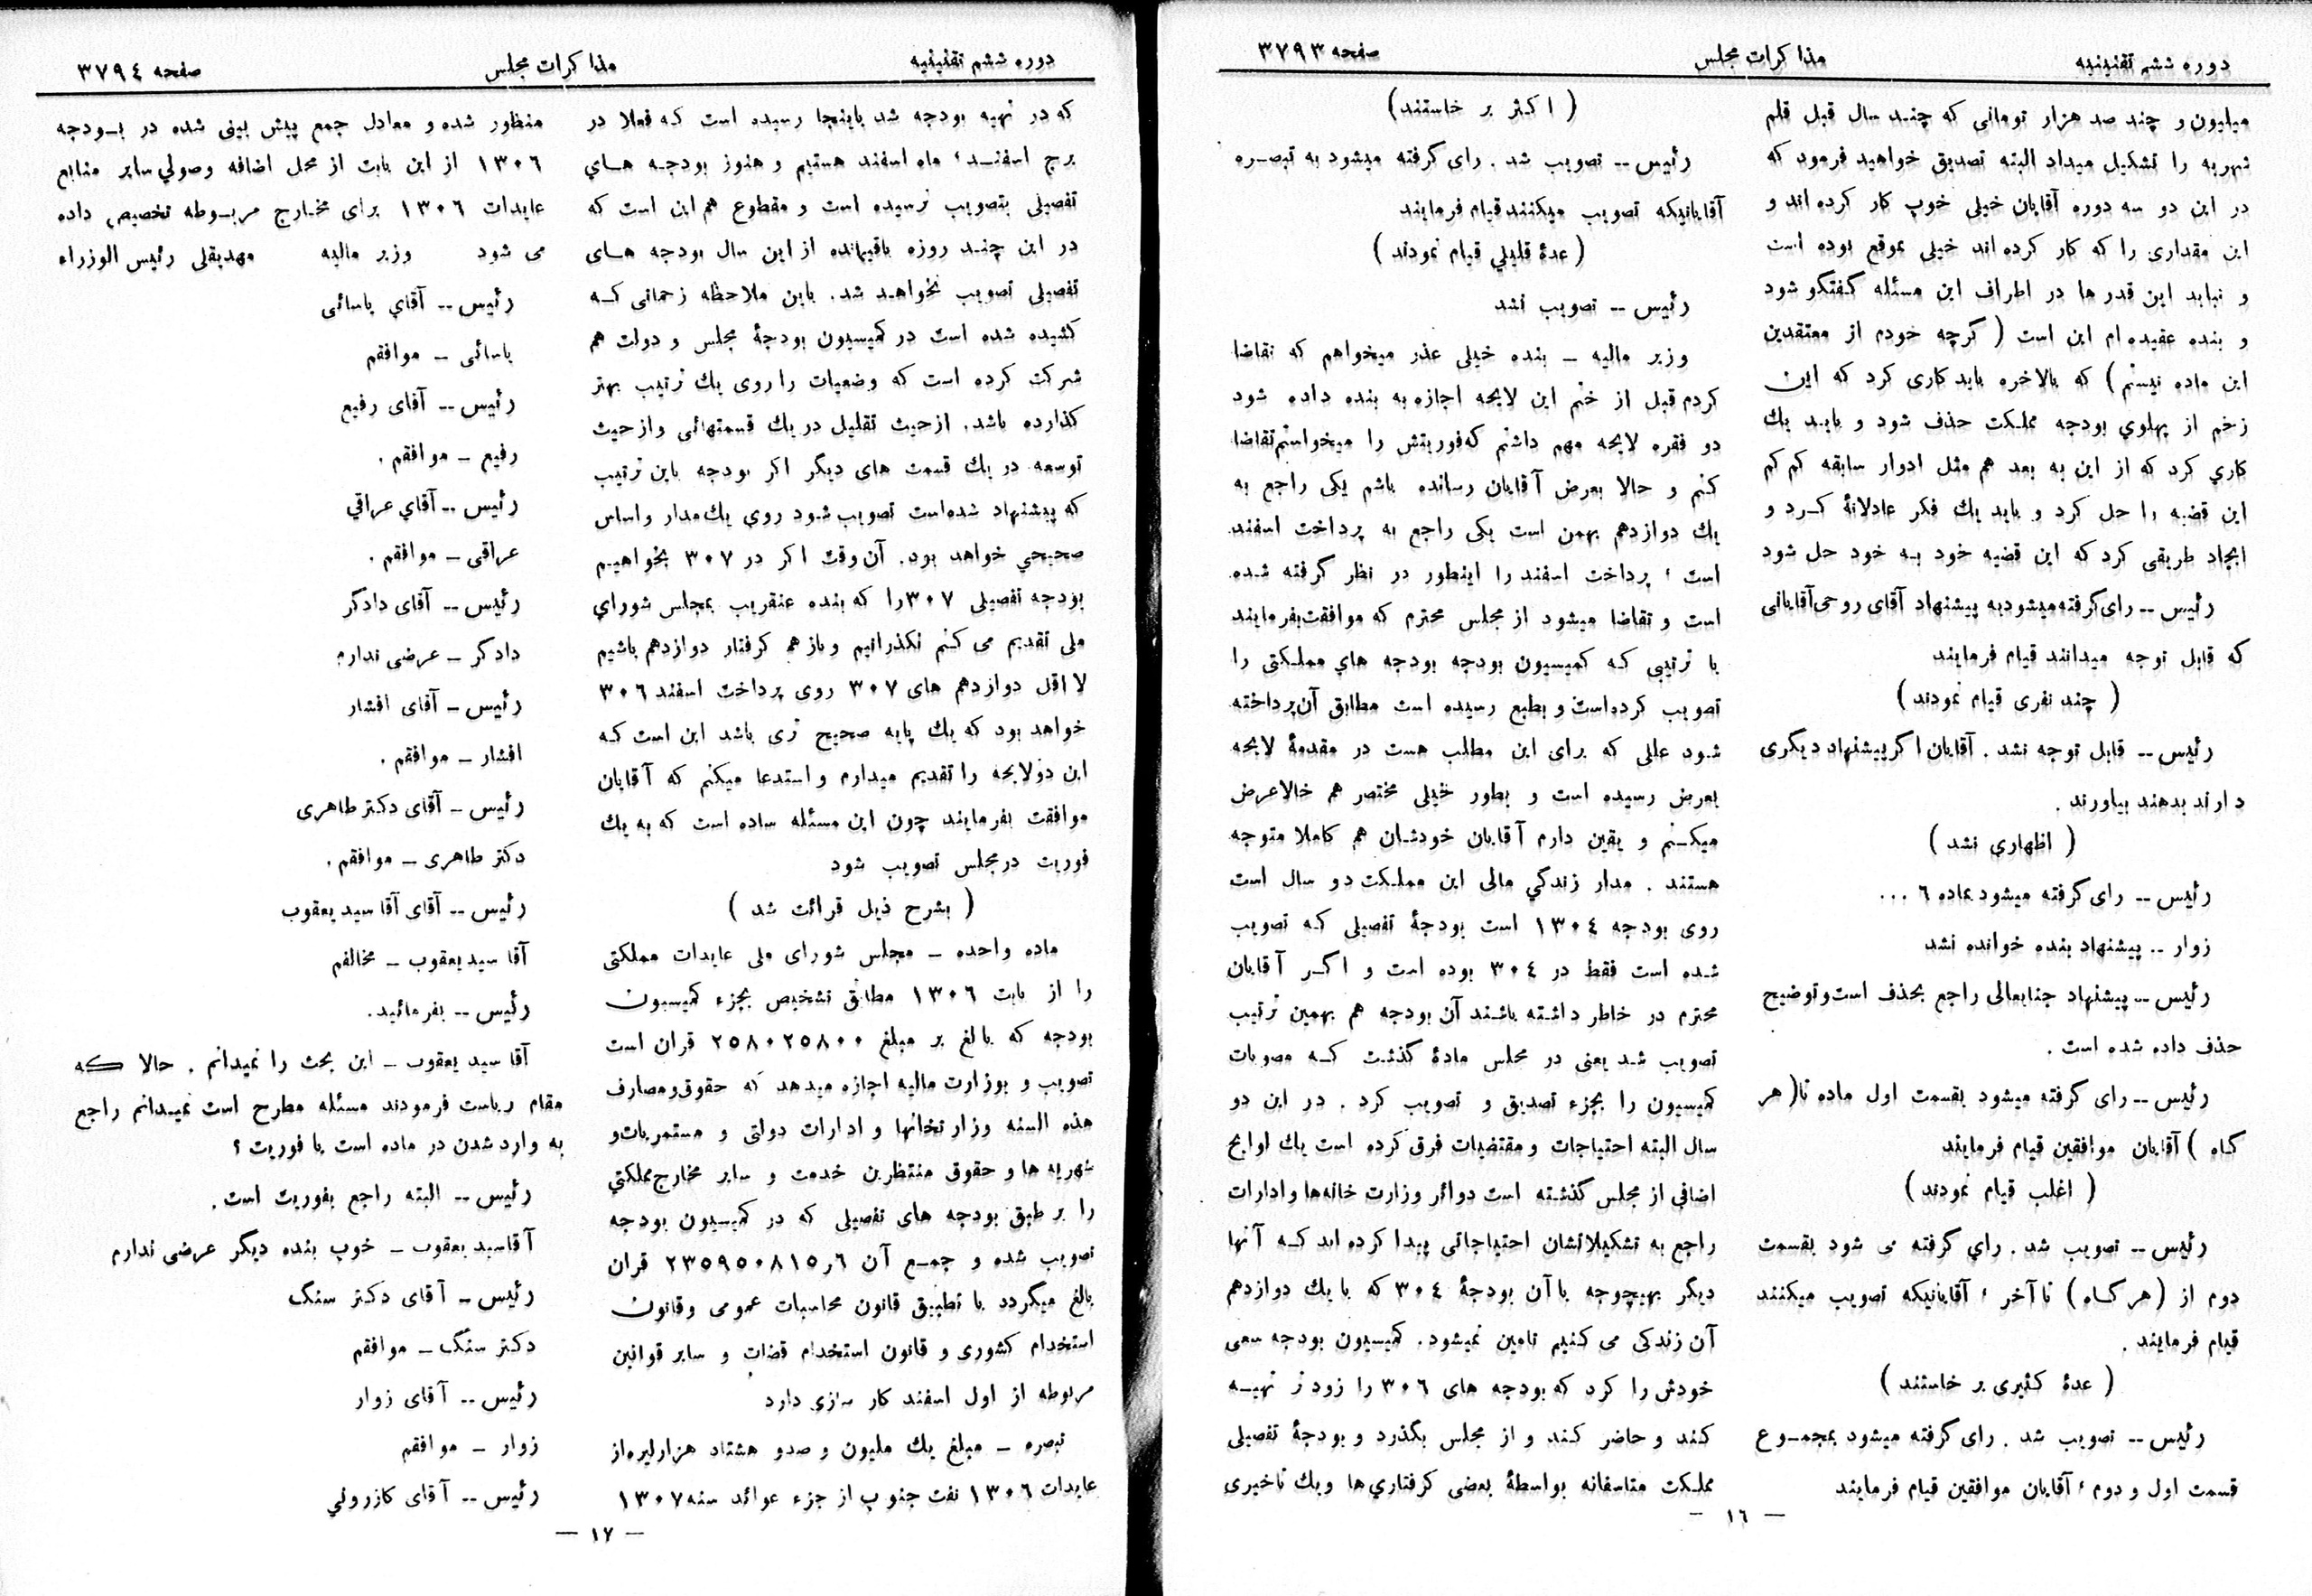 دوره ششم تقنینیه
مذاکرات مجلس
صفحه ۳۷۹۳
میلیون و چند صد هزار تومانی که چند سال قبل قلم
شهریه را تشکیل میداد البته تصدیق خواهید فرمود که
در این دو سه دوره آقایان خیلی خوب کار کرده اند و
این مقداری را که کار کرده اند خیلی بموقع بوده است
و نباید این قدر ها در اطراف این مسئله گفتگو شود
و بنده عقیده ام این است ( گرچه خودم از معتقدین
این ماده نیستم ) که بالاخره باید کاری کرد که این
زخم از پهلوي بودجه مملکت حذف شود و باید یك
کاري کرد که از این به بعد هم مثل ادوار سابقه کم کم
این قضیه را حل کرد و باید یك فکر عادلانهٔ کرد و
ایجاد طریقی کرد که این قضیه خود به خود حل شود
رئیس -- رای گرفته میشود به پیشنهاد آقای روحی آقایانی
که قابل توجه میدانند قیام فرمایند
( چند نفری قیام نمودند )
رئیس -- قابل توجه نشد . آقایان اگر پیشنهاد دیگری
دارند بدهند بیاورند .
( اظهاری نشد )
رئیس -- رای گرفته میشود بماده ٦ ...
زوار -- پیشنهاد بنده خوانده نشد
رئیس -- پیشنهاد جنابعالی راجع بحذف است و توضیح
حذف داده شده است .
رئیس -- رای گرفته میشود بقسمت اول ماده تا ( هر
گاه ) آقایان موافقین قیام فرمایند
( اغلب قیام نمودند )
رئیس -- تصویب شد . راي گرفته می شود بقسمت
دوم از ( هر گاه ) تا آخر ، آقایانیکه تصویب میکنند
قیام فرمایند .
( عدهٔ کثیری بر خاستند )
رئیس -- تصویب شد . رای گرفته میشود بمجموع
قسمت اول و دوم ، آقایان موافقین قیام فرمایند
( اکثر بر خاستند )
رئیس -- تصویب شد . رای گرفته میشود به تبصره
آقایانیکه تصویب میکنند قیام فرمایند
( عدهٔ قلیلي قیام نمودند )
رئیس -- تصویب نشد
وزیر مالیه - بنده خیلی عذر میخواهم که تقاضا
کردم قبل از ختم این لایحه اجازه به بنده داده شود
دو فقره لایحه مهم داشتم که فوریتش را میخواستم تقاضا
کنم و حالا بعرض آقایان رسانده باشم یکی راجع به
یك دوازدهم بهمن است یکی راجع به پرداخت اسفند
است ، پرداخت اسفند را اینطور در نظر گرفته شده
است و تقاضا میشود از مجلس محترم که موافقت بفرمایند
با ترتیبی که کمیسیون بودجه بودجه هاي مملکتی را
تصویب کرده است و بطبع رسیده است مطابق آن پرداخته
شود عللی که برای این مطلب هست در مقدمهٔ لایحه
بعرض رسیده است و بطور خیلی مختصر هم حالا عرض
میکنم و یقین دارم آقایان خودشان هم کاملا متوجه
هستند . مدار زندگي مالی این مملکت دو سال است
روی بودجه ۱۳۰٤ است بودجهٔ تفصیلی که تصویب
شده است فقط در ۳۰٤ بوده است و اگر آقایان
محترم در خاطر داشته باشند آن بودجه هم بهمین ترتیب
تصویب شد یعنی در مجلس مادهٔ گذشت که مصوبات
کمیسیون را بجزء تصدیق و تصویب کرد . در این دو
سال البته احتیاجات و مقتضیات فرق کرده است یك لوایح
اضافی از مجلس گذشته است دوائر وزارت خانه‌ها و ادارات
راجع به تشکیلاتشان احتیاجاتی پیدا کرده اند که آنها
دیگر بهیچوجه با آن بودجهٔ ۳۰٤ که با یك دوازدهم
آن زندگی می کنیم تامین نمیشود . کمیسیون بودجه سعی
خودش را کرد که بودجه های ۳۰٦ را زودتر تهیه
کند و حاضر کند و از مجلس بگذرد و بودجهٔ تفصیلی
مملکت متاسفانه بواسطهٔ بعضی گرفتاري ها و یك تاخیری
- ۱٦ -
دوره ششم تقنینیه
مذاکرات مجلس
صفحه ۳۷۹٤
که در تهیه بودجه شد باینجا رسیده است که فعلا در
برج اسفند ، ماه اسفند هستیم و هنوز بودجه هاي
تفصیلی بتصویب نرسیده است و مقطوع هم این است که
در این چند روزه باقیمانده از این سال بودجه های
تفصیلی تصویب نخواهد شد . باین ملاحظه زحماتی که
کشیده شده است در کمیسیون بودجهٔ مجلس و دولت هم
شرکت کرده است که وضعیات را روی یك ترتیب بهتر
گذارده باشد . از حیث تقلیل در یك قسمتهائی و از حیث
توسعه در یك قسمت های دیگر اگر بودجه باین ترتیب
که پیشنهاد شده است تصویب شود روي یك مدار و اساس
صحیحي خواهد بود . آن وقت اگر در ۳۰۷ بخواهیم
بودجه تفصیلی ۳۰۷ را که بنده عنقریب بمجلس شوراي
ملی تقدیم می کنم نگذرانیم و باز هم گرفتار دوازدهم باشیم
لا اقل دوازدهم های ۳۰۷ روی پرداخت اسفند ۳۰٦
خواهد بود که یك پایه صحیح تری باشد این است که
این دو لایحه را تقدیم میدارم و استدعا میکنم که آقایان
موافقت بفرمایند چون این مسئله ساده است که به یك
فوریت در مجلس تصویب شود
( بشرح ذیل قرائت شد )
ماده واحده - مجلس شورای ملی عایدات مملکتی
را از بابت ۱۳۰٦ مطابق تشخیص بجزء کمیسیون
بودجه که بالغ بر مبلغ ۲۵۸۰۲۵۸۰۰ قران است
تصویب و بوزارت مالیه اجازه میدهد که حقوق و مصارف
هذه السنه وزارتخانها و ادارات دولتی و مستمریات و
شهریه ها و حقوق منتظرین خدمت و سایر مخارج مملکتي
را بر طبق بودجه های تفصیلی که در کمیسیون بودجه
تصویب شده و جمع آن ٦ر۲۳۵۹۵۰۸۱۵ قران
بالغ میگردد با تطبیق قانون محاسبات عمومی و قانون
استخدام کشوری و قانون استخدام قضات و سایر قوانین
مربوطه از اول اسفند کار سازی دارد
تبصره - مبلغ یك ملیون و صدو هشتاد هزار لیره از
عایدات ۱۳۰٦ نفت جنوب از جزء عوائد سنه ۱۳۰۷
منظور شده و معادل جمع پیش بینی شده در بودجه
۱۳۰٦ از این بابت از محل اضافه وصولي سایر منابع
عایدات ۱۳۰٦ برای مخارج مربوطه تخصیص داده
می شود وزیر مالیه مهدیقلی رئیس الوزراء
رئیس -- آقاي یاسائی
یاسائی - موافقم
رئیس -- آقای رفیع
رفیع - موافقم .
رئیس -- آقاي عراقي
عراقی - موافقم .
رئیس -- آقای دادگر
دادگر - عرضی ندارم
رئیس - آقای افشار
افشار - موافقم .
رئیس - آقای دکتر طاهری
دکتر طاهری - موافقم .
رئیس -- آقای آقا سید یعقوب
آقا سید یعقوب - مخالفم
رئیس -- بفرمائید .
آقا سید یعقوب - این بحث را نمیدانم . حالا که
مقام ریاست فرمودند مسئله مطرح است نمیدانم راجع
به وارد شدن در ماده است یا فوریت ؟
رئیس -- البته راجع بفوریت است .
آقا سید یعقوب - خوب بنده دیگر عرضی ندارم
رئیس - آقای دکتر سنگ
دکتر سنگ - موافقم
رئیس -- آقای زوار
زوار - موافقم
رئیس -- آقای کازرونی
- ۱۷ -